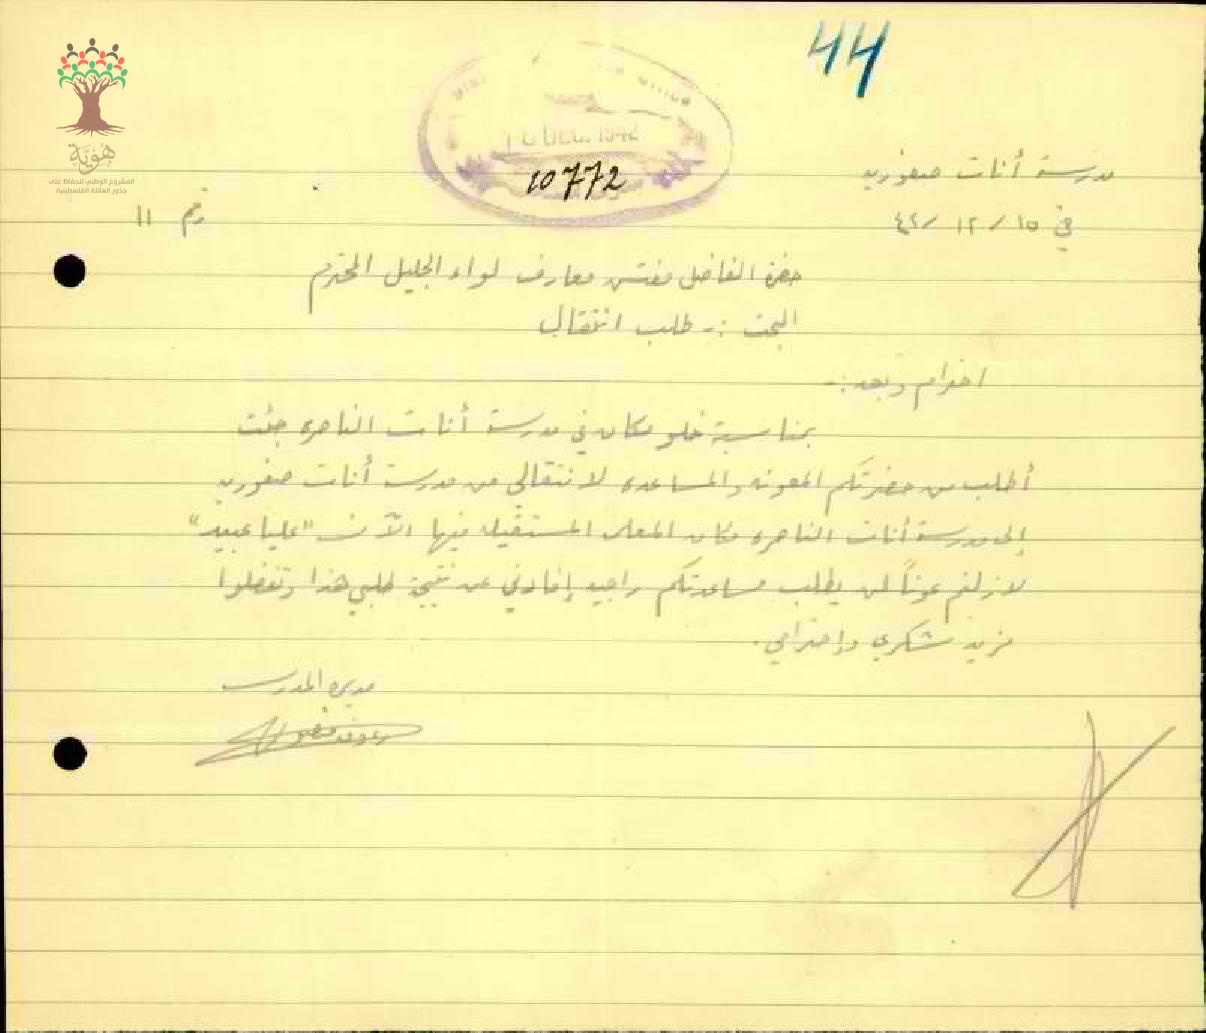 44
هُوِيَّة
المشروع الوطني للحفاظ على
جذور العائلة الفلسطينية
Office
DEC. 1942
10772
مدرسة أناث صفوريه
في ١٥ / ١٢ / ٤٢
رقم ١١
حضرة الفاضل مفتش معارف لواء الجليل المحترم
البحث :- طلب انتقال
احترام وبعد :-
بمناسبة خلو مكان في مدرسة أناث الناصره جئت
أطلب من حضرتكم المعونه والمساعده لانتقالي من مدرسة أناث صفوريه
إلى مدرسة أناث الناصره مكان المعلمه المستقيله فيها الآنسه "عليا عبيد"
لازلتم عوناً لمن يطلب مساعدتكم راجيه إفادتي عن نتيجة طلبي هذا وتفضلوا
مزيد شكري واحترامي .
مديرة المدرسه